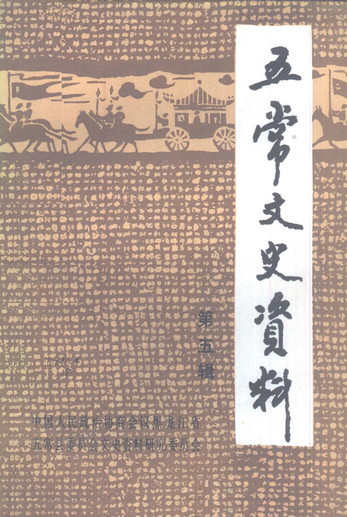 五常文史資料
第五辑
中国人民政治协商会议黑龙江省
五常县委员会文史资料研究委员会